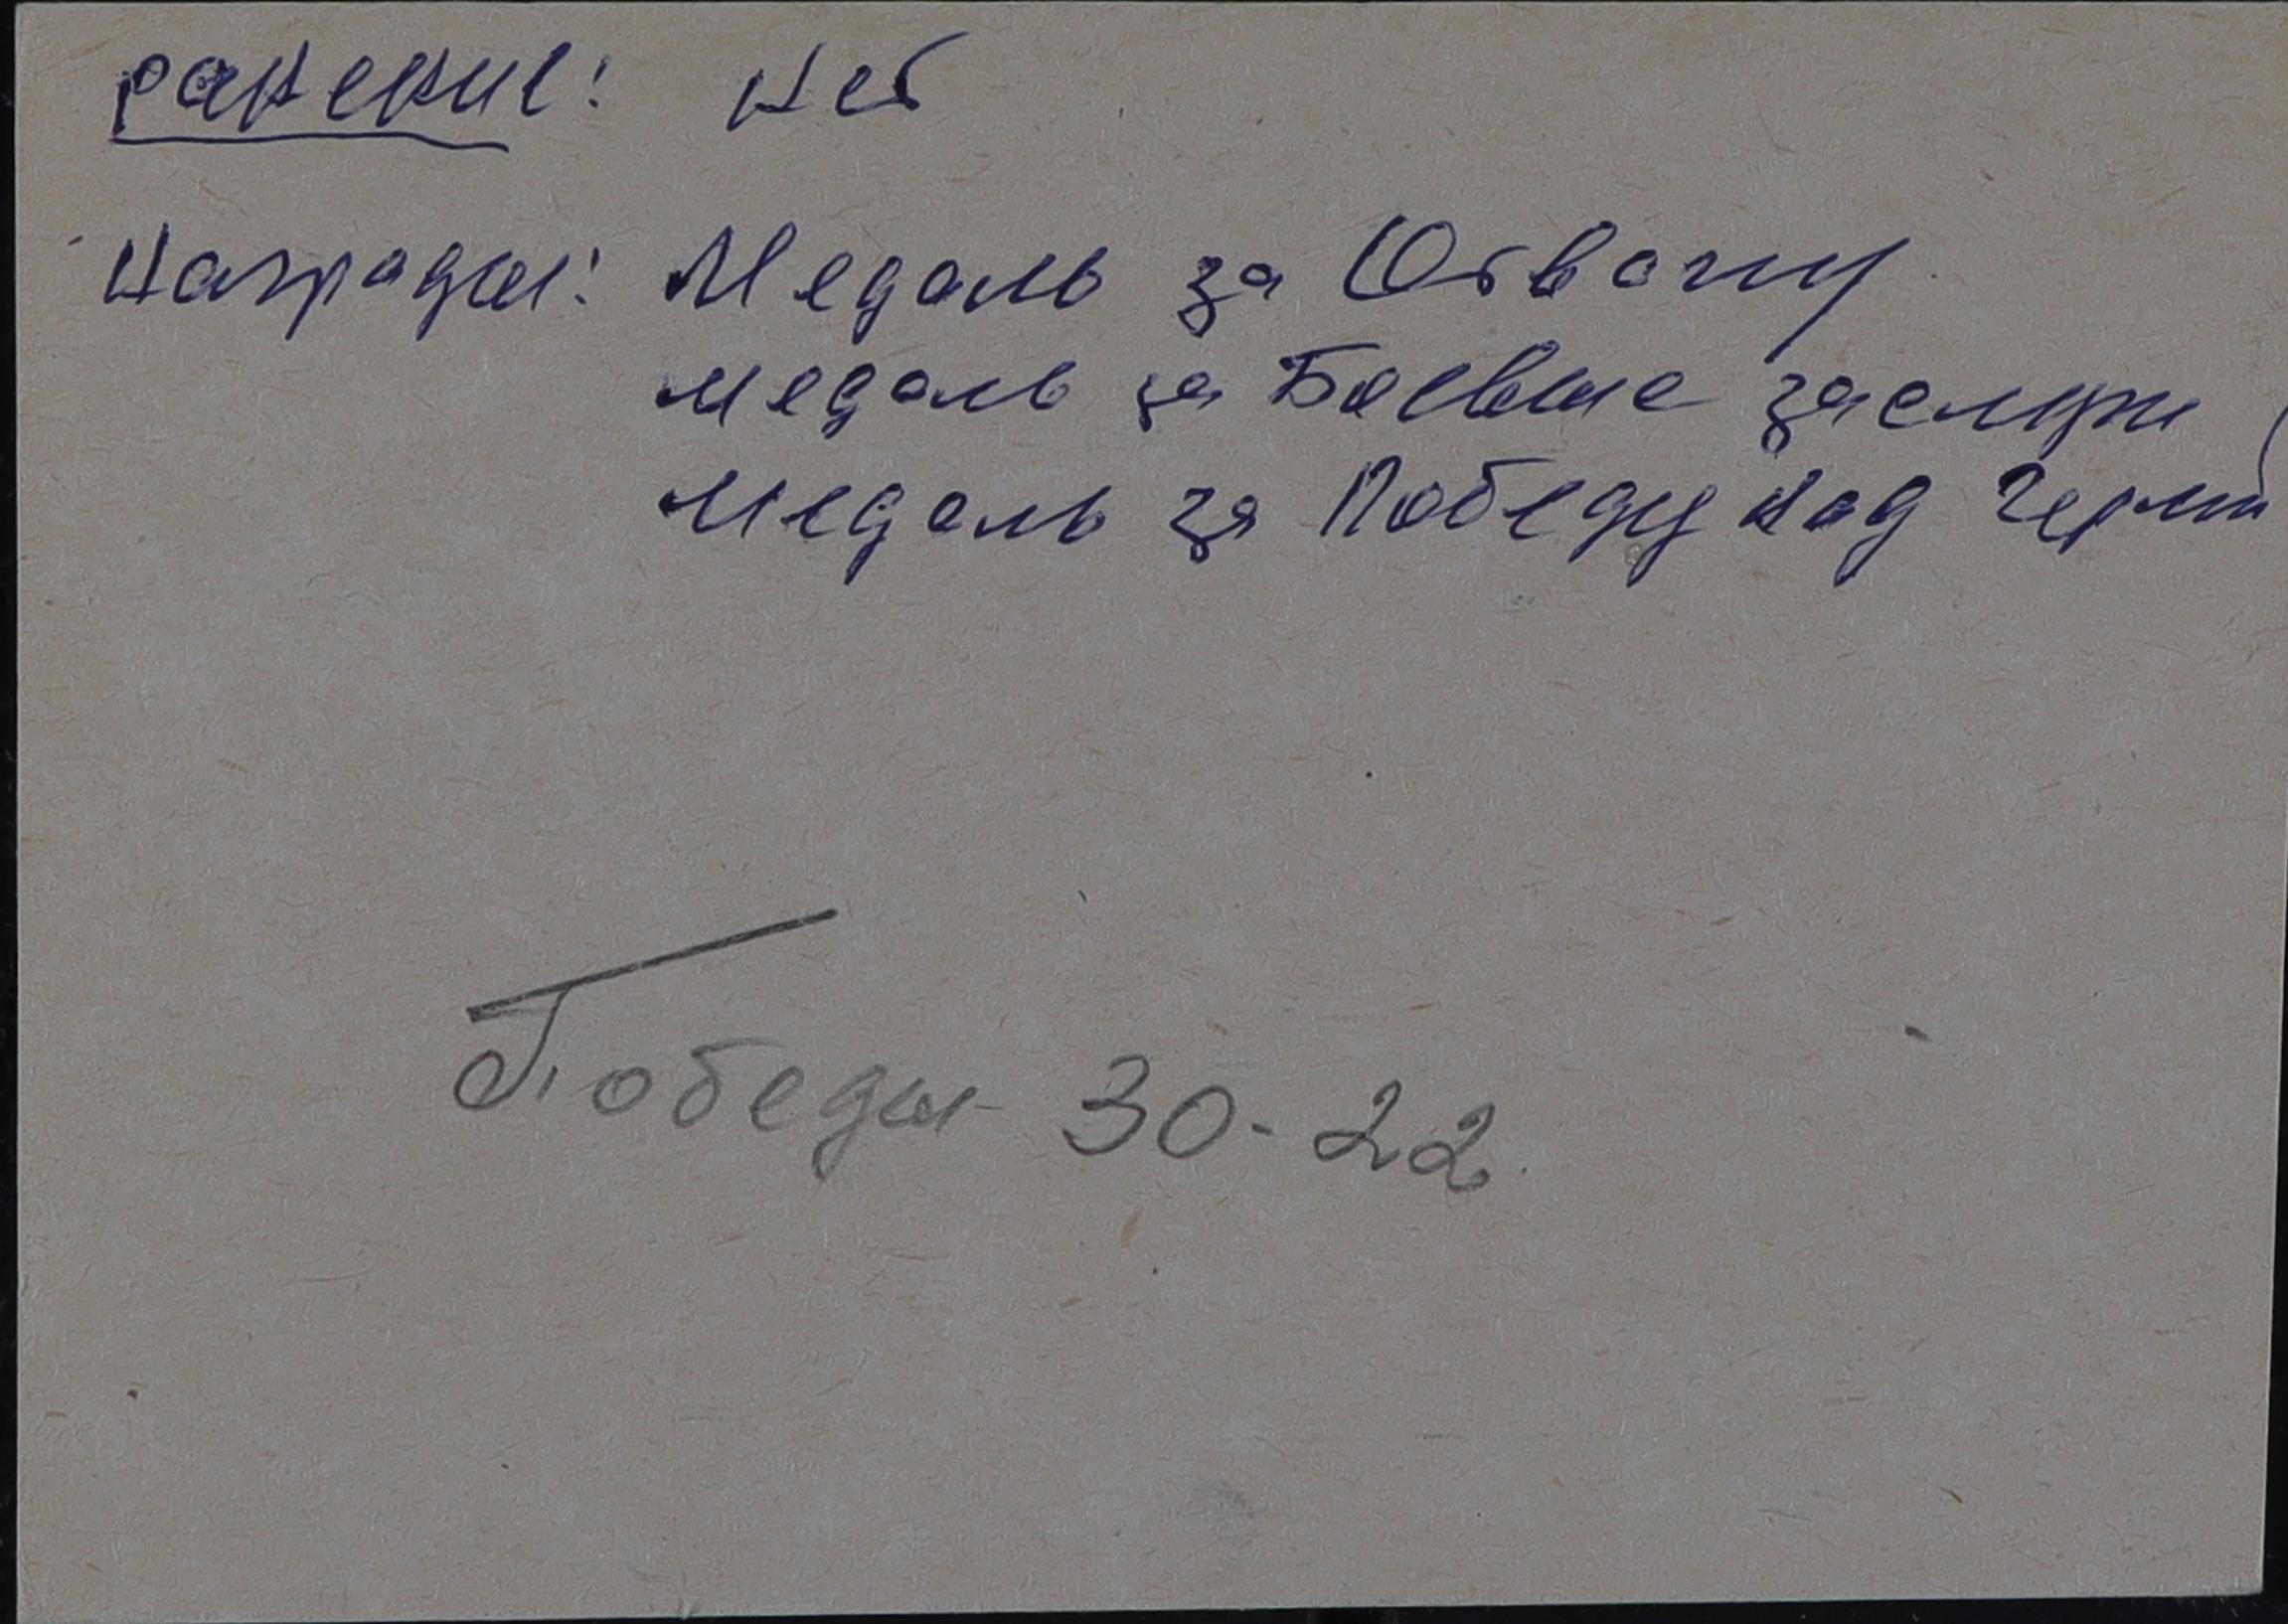 ранение: нет
Награды: Медаль за Отвагу
медаль за Боевые заслуги
медаль за Победу над Герм
Победы 30-22